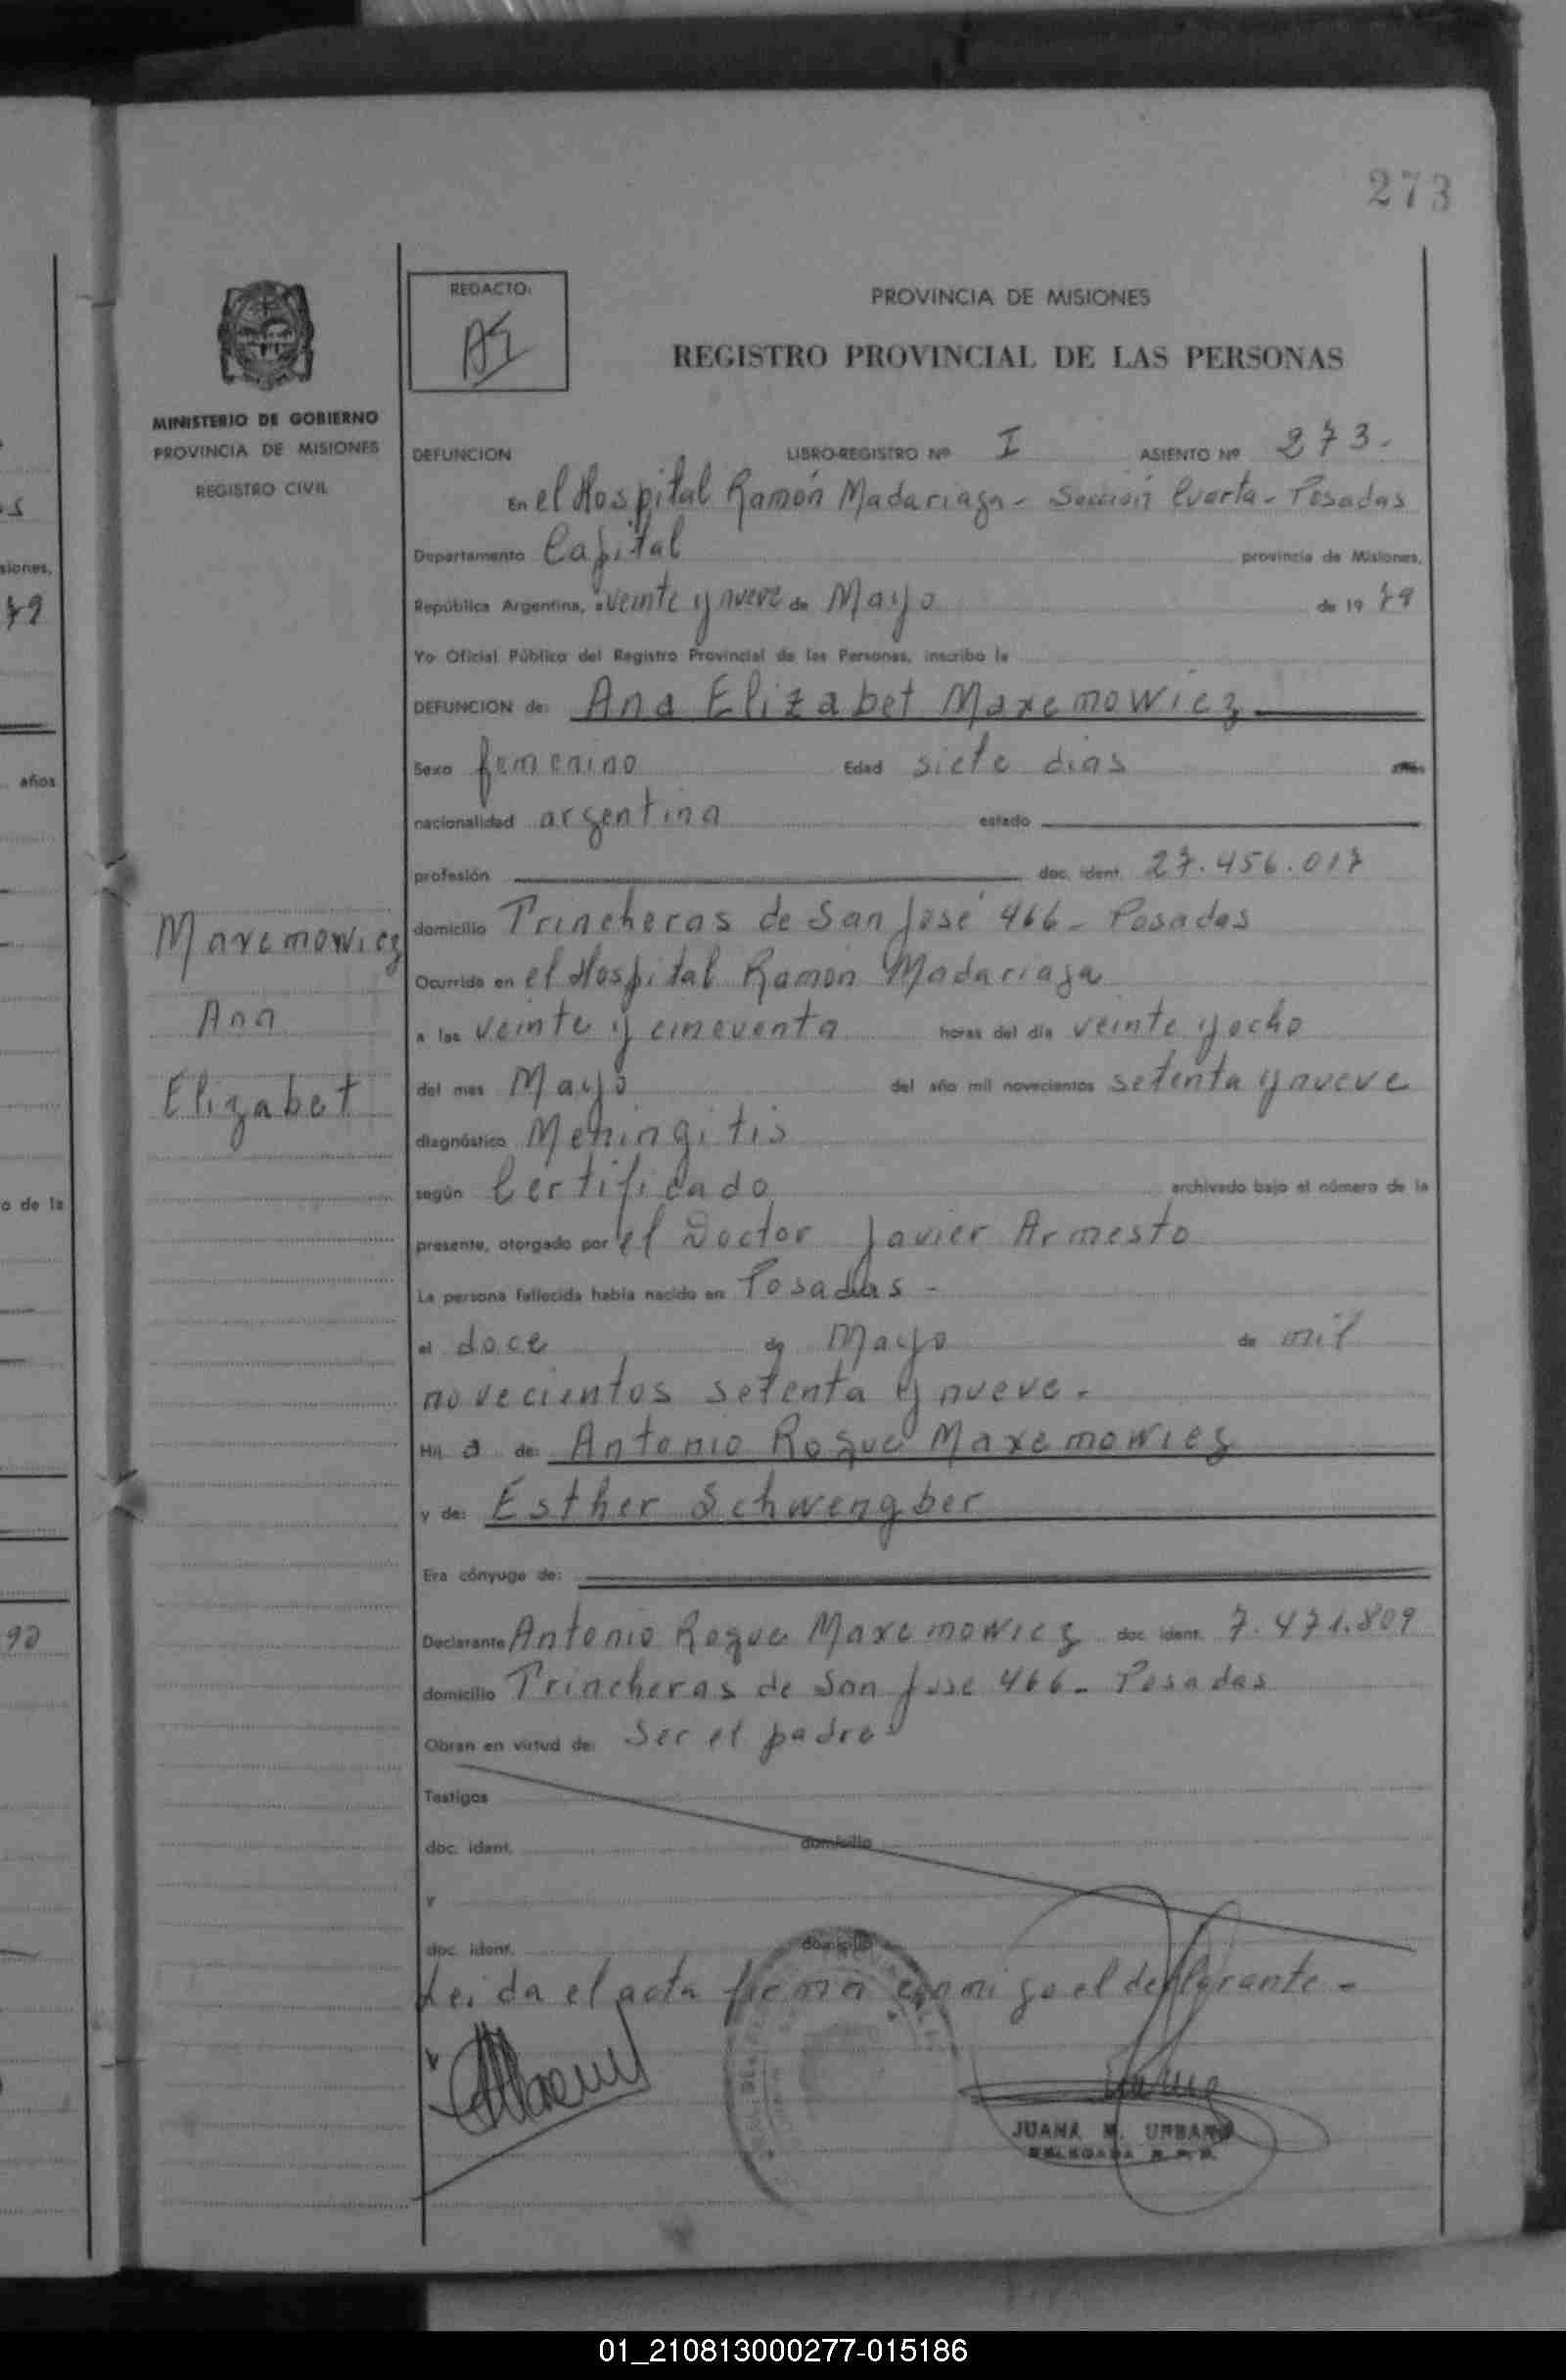 273
REDACTO:
MINISTERIO DE GOBIERNO
PROVINCIA DE MISIONES
REGISTRO CIVIL
PROVINCIA DE MISIONES
REGISTRO PROVINCIAL DE LAS PERSONAS
DEFUNCION LIBRO-REGISTRO Nº I ASIENTO Nº 273.-
En el Hospital Ramón Madariaga - Sección Cuarta - Posadas
Departamento Capital provincia de Misiones,
República Argentina, a veinte y nueve de Mayo de 19 79
Yo Oficial Público del Registro Provincial de las Personas, inscribo la
DEFUNCION de: Ana Elizabet Maxemowicz
Sexo femenino Edad siete dias
nacionalidad argentina estado
profesión doc. ident. 27.456.017
domicilio Trincheras de San José 466 - Posadas
Ocurrida en el Hospital Ramón Madariaga
a las veinte y cincuenta horas del día veinte y ocho
del mes Mayo del año mil novecientos setenta y nueve
diagnóstico Meningitis
según Certificado archivado bajo el número de la
presente, otorgado por el Doctor Javier Armesto
La persona fallecida había nacido en Posadas -
el doce de Mayo de mil
novecientos setenta y nueve.
Hij a de: Antonio Roque Maxemowicz
y de: Esther Schwengber
Era cónyuge de:
Declarante Antonio Roque Maxemowicz doc. ident. 7.471.809
domicilio Trincheras de San José 466 - Posadas
Obran en virtud de: Ser el padre
Testigos
doc. ident. domicilio
y
doc. ident. domicilio
Leida el acta firma conmigo el declarante -
JUANA M. URBANO
DELEGADA R. P. P.
Maxemowicz
Ana
Elizabet
siones,
79
años
o de la
90
01_210813000277-015186